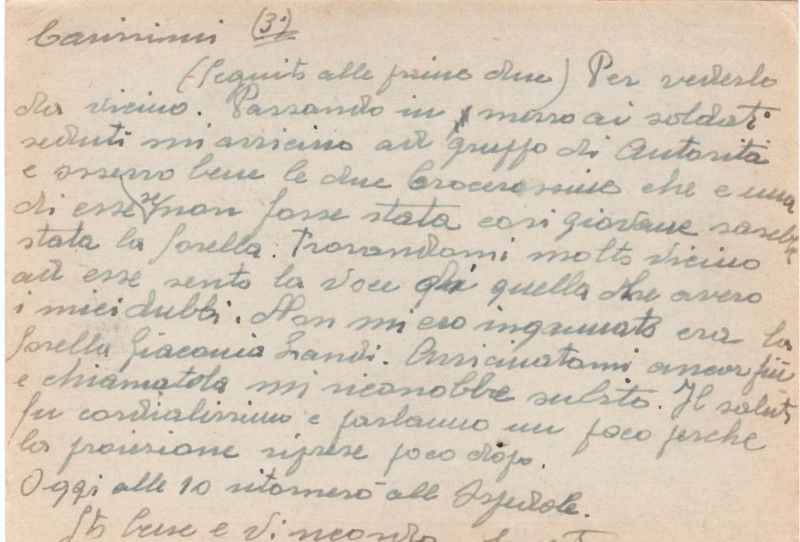 Carissimi (3ª)
(Seguito alle prime due) Per vederlo
da vicino. Passando in mezzo ai soldati
seduti mi avvicino ad gruppo di Autorità
e osservo bene le due Crocerossine che e una
di esse se non fosse stata cosi giovane sarebbe
stata la Sorella. Trovandomi molto vicino
ad esse sento la voce di quella che avevo
i miei dubbi. Non mi ero ingannato era la
Sorella Giaconia Landi. Avvicinatomi ancor più
e chiamatola mi riconobbe subito. Il saluto
fu cordialissimo e parlammo un poco perche
la proiezione riprese poco dopo.
Oggi alle 10 ritornerò all Ospedale.
Sto bene e vi ricordo